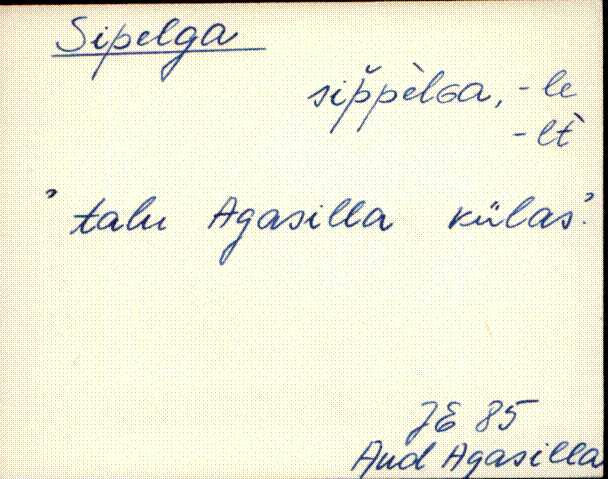 Sipelga
sip̌pèlGa, -le
-lt̀
"talu Agasilla külas".
JE 85
Aud Agasilla